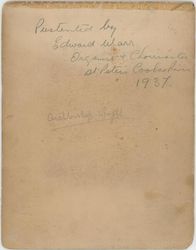 Presented by
Edward Warr
Organist & Choirmaster
St Peters Cooks River
1937.